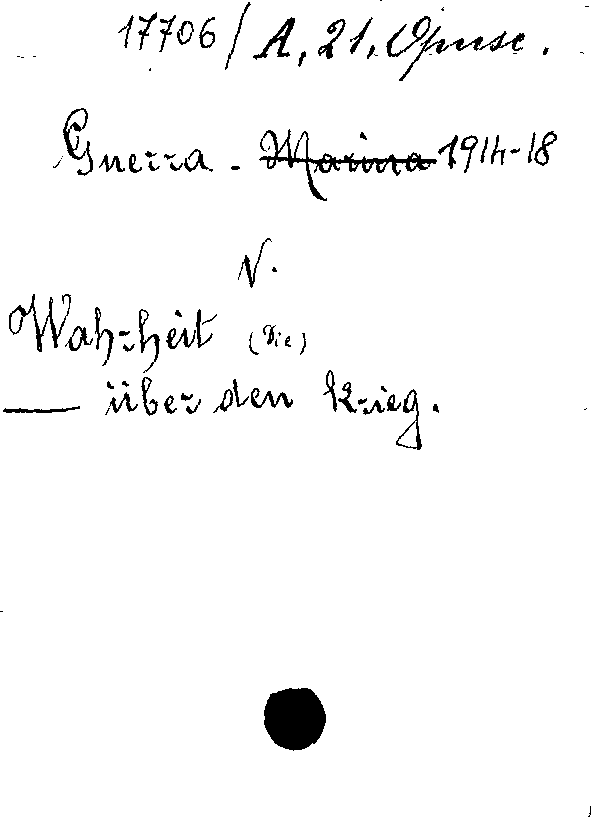 17706/ A, 21, Opusc.
Guerra - Marina 1914-18
V.
Wahrheit (Die)
— über den Krieg.